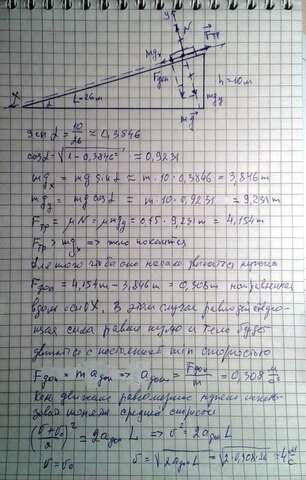 y
N
Fтр
mgx
Fдоп
h=10м
mgy
mg
X
α
L=26м
sin α = 10/26 ≈ 0,3846
cos α = √(1-0,3846²) ≈ 0,9231
mgx = mg sin α ≈ m·10·0,3846 = 3,846m
mgy = mg cos α ≈ m·10·0,9231 = 9,231m
Fтр = μN = μmgy = 0,45·9,231m = 4,154m
Fтр > mgx => тело покоится
Для того чтобы оно начало двигаться нужна
Fдоп = 4,154m - 3,846m = 0,308m направленная
вдоль оси X. В этом случае равнодействую-
щая сила равна нулю и тело будет
двигаться с постоянной скоростью
Fдоп = m aдоп => aдоп = Fдоп/m = 0,308 м/с²
движении равномерно нужно
средней скорости
((v+v₀)/2)² = 2aдоп L => v² = 2aдоп L
v = v₀ v = √(2aдоп L) = √(2·0,308·26) = 4 м/с